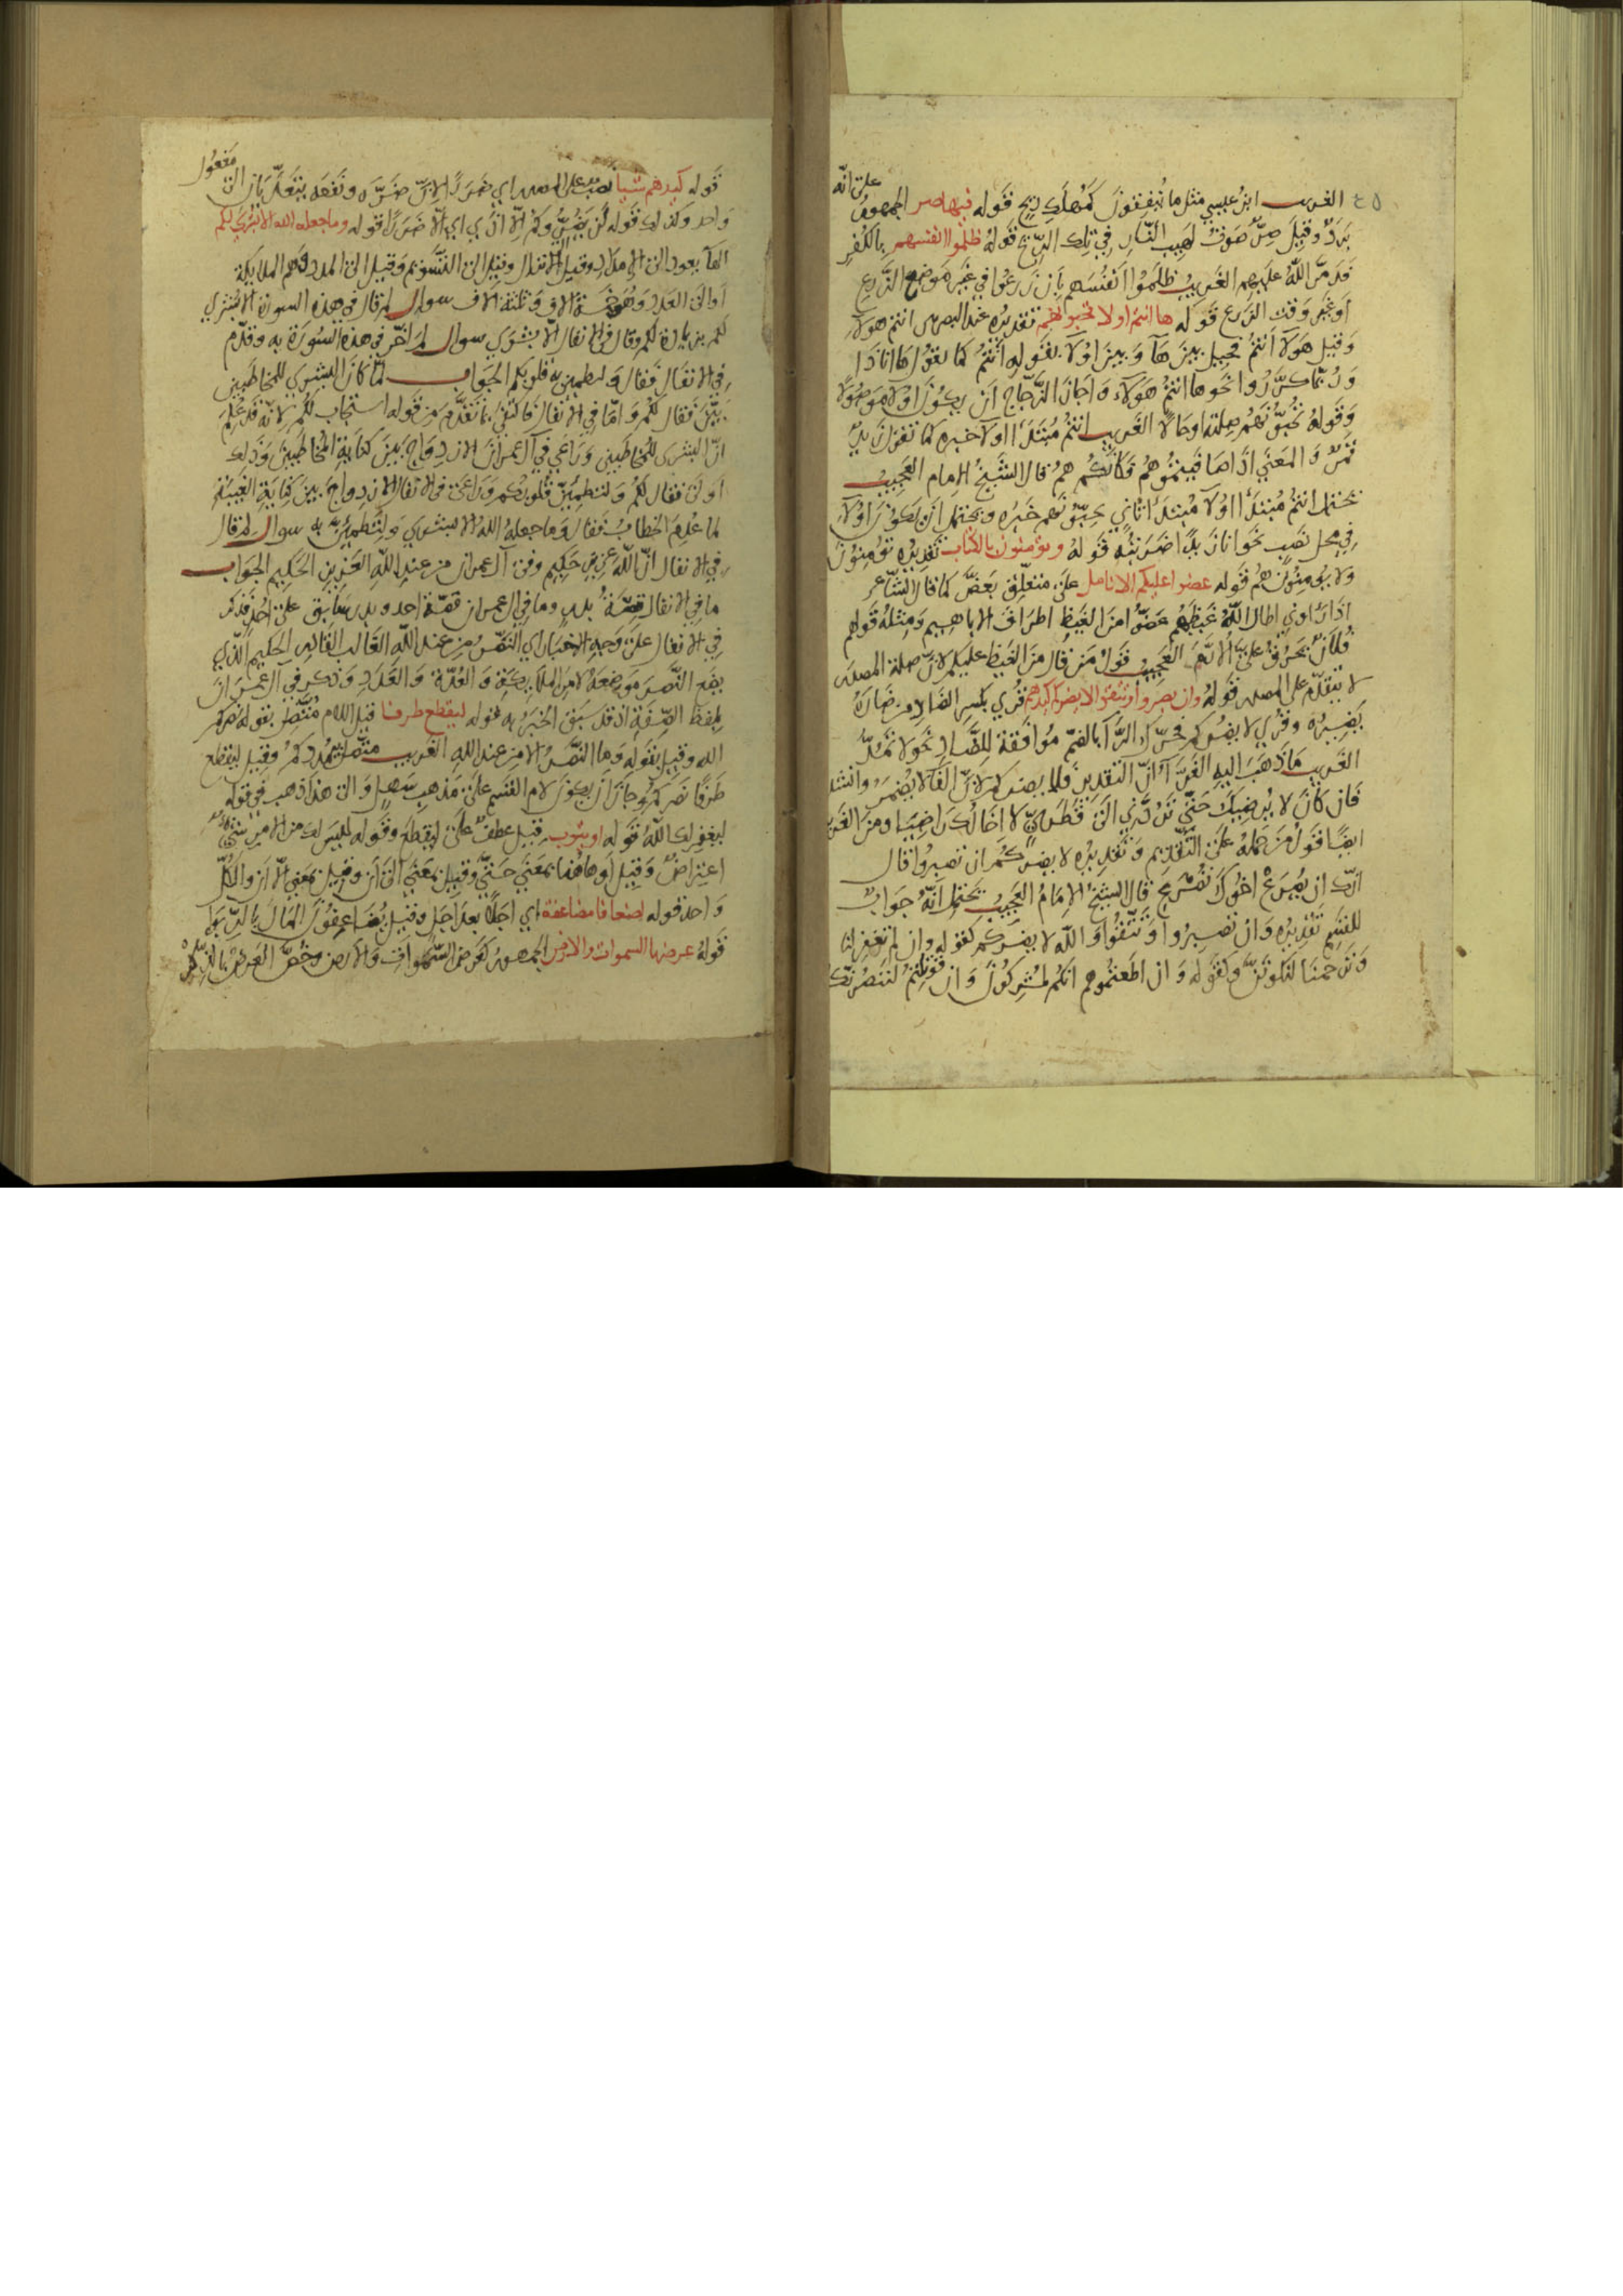 على انه
٤٥ الغريب ابن عيسي مثل ما ينفقون كمهلك ريح قوله فيها صر الجمهور
برد وقيل صر صوت لهيب النار في تلك الريح قوله ظلموا انفسهم بالكفر
فدمر الله عليهم الغريب ظلموا انفسهم بان زرعوا في غير موضع الزرع
او غير وقت الزرع قوله ها انتم اولا تحبونهم تقديره عند البصريين انتم هولاء
وقيل هولا انتم فحيل بين ها وبين اولا بقوله انتم كما يقول ها انا ذا
وربما كرروا نحو ها انتم هولاء واجاز الزجاج ان يكون اولا موصولا
وقوله تحبونهم صلته او حالا الغريب انتم مبتدا اولا خبره كما تقول زيد
قمر والمعني اذا هاقيتموهم فكانكم هم قال الشيخ الامام العجيب
يحتمل انتم مبتدا اولا مبتدا ثاني تحبونهم خبره ويحتمل ان يكون اولاء
في محل نصب نحو انا زيدا ضربته قوله وتؤمنون بالكتاب تقديره تؤمنون
ولا يؤمنون هم قوله عضوا عليكم الانامل على متعلق بعض كما قال الشاعر
اذا راوني اطال الله غيظهم عضوا من الغيظ اطراف الاباهيم ومثله قولهم
فلان يحرق علي الارم العجيب قول من قال من الغيظ عليكم لان صلة المصدر
لا يتقدم على المصدر قوله وان تصبروا وتتقوا لا يضركم كيدهم قري بكسر الضاد من ضاره
يضيره وقري لا يضركم فحرك الرا بالضم موافقة للضاد نحو لا تمد
الغريب ما ذهب اليه الفرا ان التقدير فلا يضركم لان الفا لا يضمر وانشد
فان كان لا يرضيك حتى تردني الى قطري لا اخالك راضيا ومن الغريب
ايضا قول من حمله على التقديم وتقديره لا يضركم ان تصبروا قال
انك ان يصرع اخوك تصرع قال الشيخ الامام العجيب يحتمل انه جواب
للقسم تقديره وان تصبروا وتتقوا والله لا يضركم كقوله وان لم تغفر لنا
وترحمنا لنكونن وكقوله وان اطعتموهم انكم لمشركون وان قوتلتم لننصرنكم
مفعول
قوله كيدهم شيا نصب على المصدر اي ضررا لان ضره ونفعه يتعديان الى
واحد وكذلك قوله لن يضروكم الا اذي اي الا ضررا قوله وما جعله الله الا بشري لكم
الها يعود الى الامداد وقيل الانزال وقيل الى التسويم وقيل الى المدد وهم الملايكة
او الى العدد وهو خمسة الاف وثلثة الاف سوال لم قال في هذه السورة الا بشري
لكم بزيادة لكم وقال في الانفال الا بشري سوال لم اخر في هذه السورة به وقدم
في الانفال فقال ولتطمين به قلوبكم الجواب لما كان البشري للمخاطبين
بين فقال لكم واما في الانفال فاكتفى بما تقدم من قوله استجاب لكم لانه قد علم
ان البشري للمخاطبين وراعي في آل عمران الازدواج بين كناية المخاطبين وذلك
اولى فقال لكم ولتطمئن قلوبكم وراعى في الانفال الازدواج بين كناية الغيبة
لما علم الخطاب فقال وما جعله الله الا بشري ولتطمئن به سوال لم قال
في الانفال ان الله عزيز حكيم وفي آل عمران من عند الله العزيز الحكيم الجواب
ما في الانفال قصة بدر وما في ال عمران قصة احد وبدر سابق على احد فذكر
في الانفال على وجه الاخبار اي النصر من عند الله الغالب القاهر الحكيم الذي
يضع النصر موضعه لا من الملايكة والعدة والعدد وذكر في آل عمران
بلفظ الصفة اذ قد سبق الخبر به قوله ليقطع طرفا قيل اللام متصل بقوله نصركم
الله وقيل بقوله وما النصر الا من عند الله الغريب متصل بيمددكم وقيل ليقطع
طرفا نصركم وجاز ان يكون لام القسم على مذهب سهل والى هذا ذهب في قوله
ليغفر لك الله قوله او يتوب قيل عطف على ليقطع وقوله ليس لك من الامر شي
اعتراض وقيل او هاهنا بمعني حتي وقيل بمعني الى ان وقيل بمعني الا ان والكل
واحد قوله اضعافا مضاعفة اي اجلا بعد اجل وقيل يضاعفون المال بالربوا
قوله عرضها السموات والارض الجمهور كعرض السموات والارض وخص العرض بالذكر